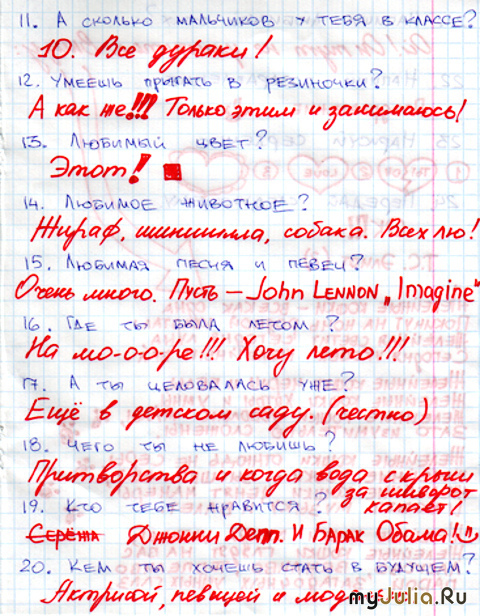 11. А СКОЛЬКО МАЛЬЧИКОВ У ТЕБЯ В КЛАССЕ?
10. Все дураки!
12. УМЕЕШЬ ПРЫГАТЬ В РЕЗИНОЧКИ?
А как же!!! Только этим и занимаюсь!
13. ЛЮБИМЫЙ ЦВЕТ?
Этот!
14. ЛЮБИМОЕ ЖИВОТНОЕ?
Жираф, шиншилла, собака. Всех лю!
15. ЛЮБИМАЯ ПЕСНЯ И ПЕВЕЦ?
Очень много. Пусть – John LENNON „Imagine"
16. ГДЕ ТЫ БЫЛА ЛЕТОМ?
На мо-о-о-ре!!! Хочу лето!!!
17. А ТЫ ЦЕЛОВАЛАСЬ УЖЕ?
Ещё в детском саду. (честно)
18. ЧЕГО ТЫ НЕ ЛЮБИШЬ?
Притворства и когда вода с крыши
за шиворот
капает!
19. КТО ТЕБЕ НРАВИТСЯ?
Серёжа Джонни Депп. И Барак Обама!
20. КЕМ ТЫ ХОЧЕШЬ СТАТЬ В БУДУЩЕМ?
Актрисой, певицей и
myJulia.Ru